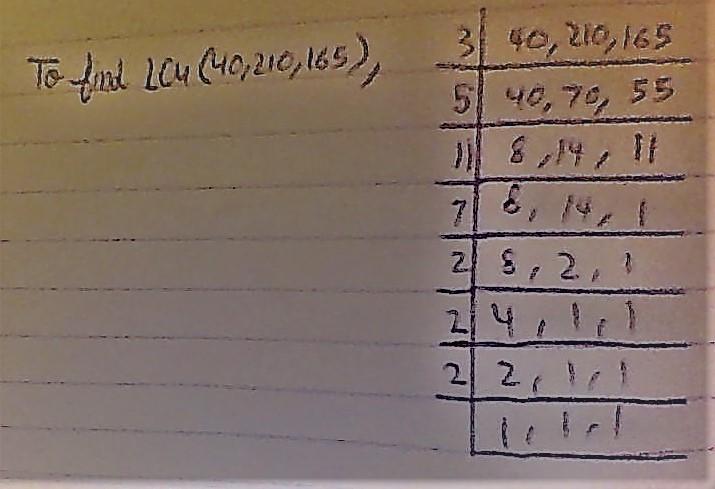 To find LCM (40,210,165),
3 | 40, 210, 165
5 | 40, 70, 55
11 | 8, 14, 11
7 | 8, 14, 1
2 | 8, 2, 1
2 | 4, 1, 1
2 | 2, 1, 1
1, 1, 1